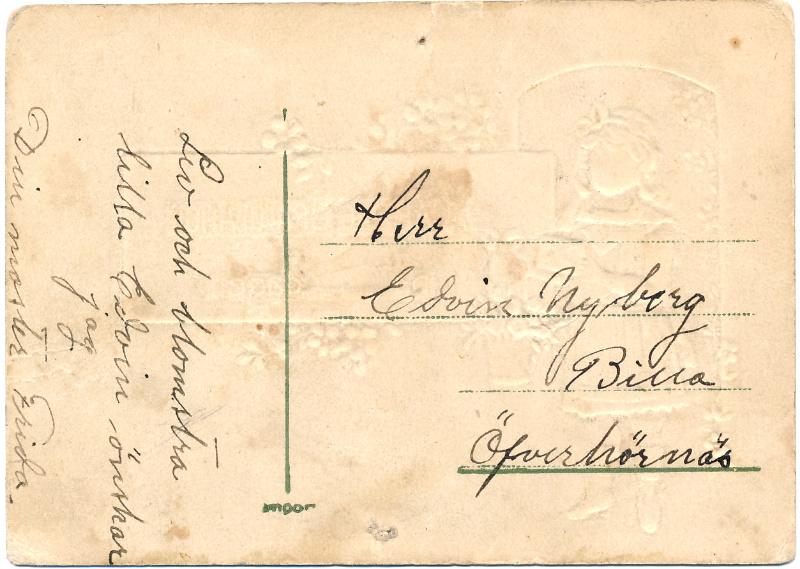 Lev och blomstra
lilla Edvin önskar
jag
Din moster Frida.
Herr
Edvin Nyberg
Billa
Öfverhörnäs